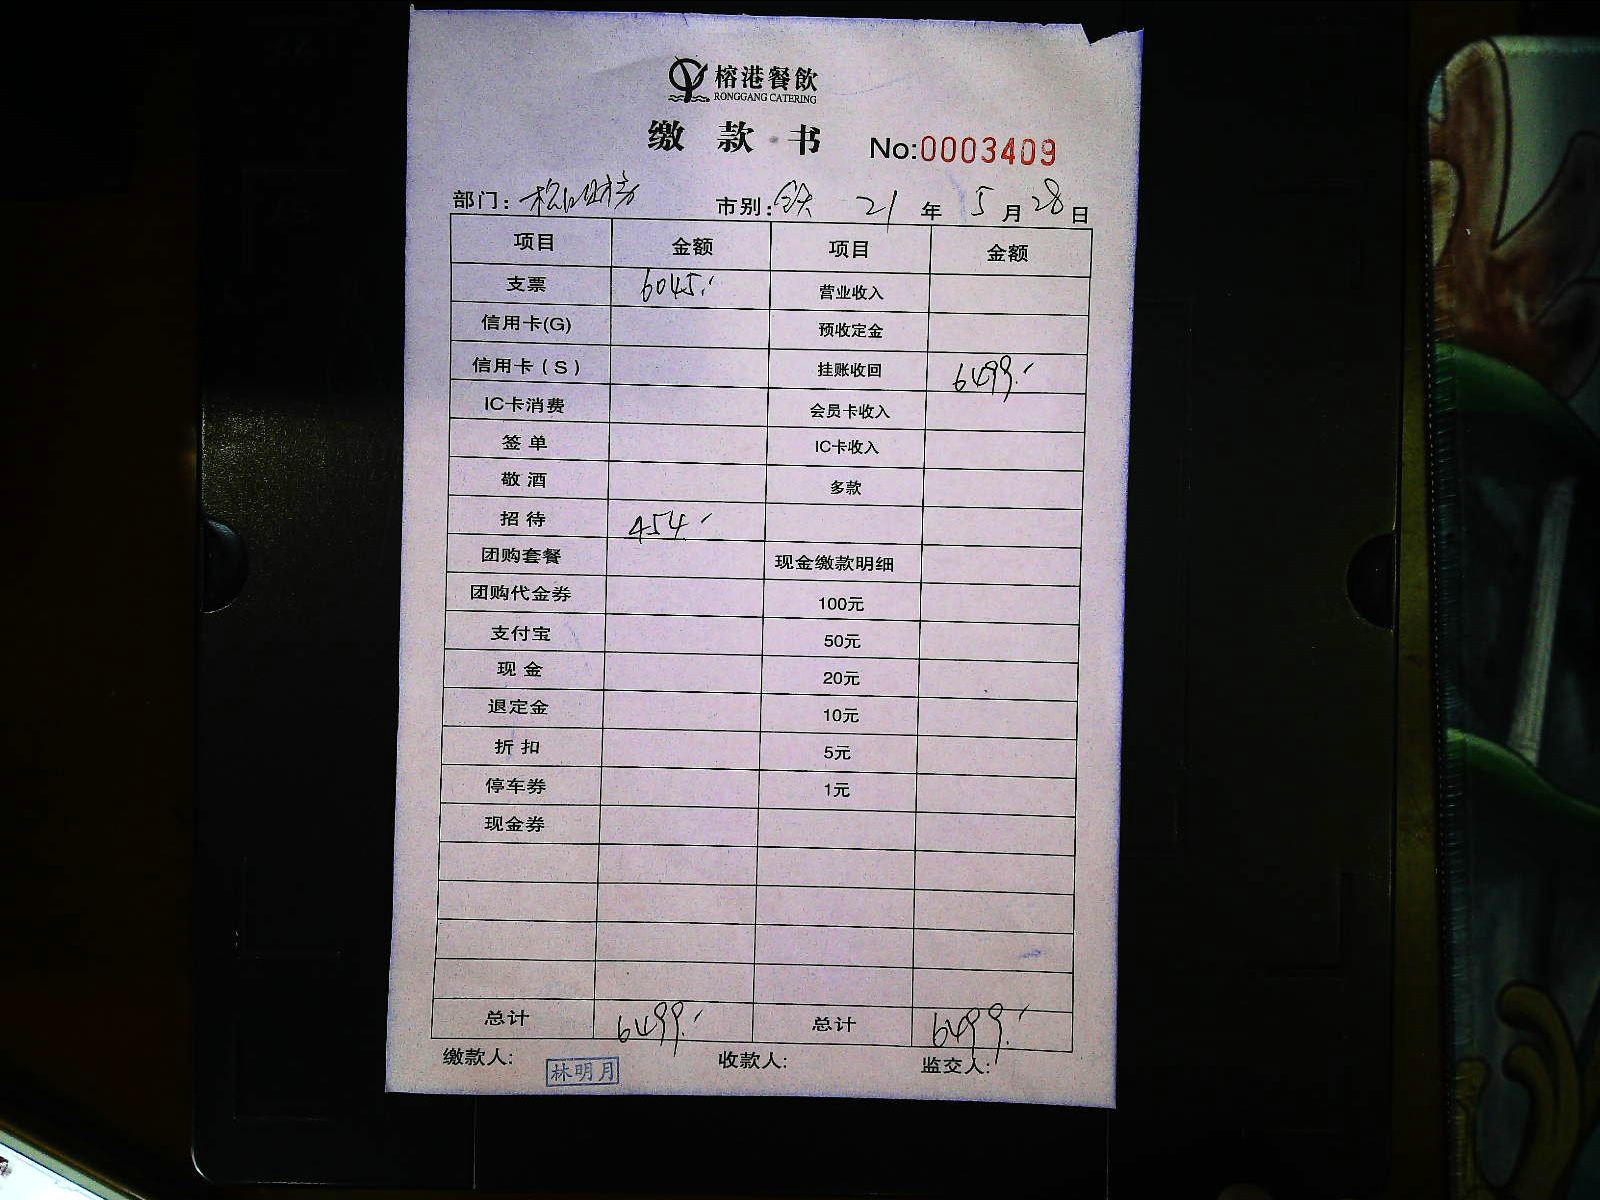 榕港餐飲
RONGGANG CATERING
缴 款 书 No:0003409
部门: 市别: 21 年 5 月 28 日
项目 金额 项目 金额
支票 6045.- 营业收入
信用卡(G) 预收定金
信用卡(S) 挂账收回 6499.-
IC卡消费 会员卡收入
签单 IC卡收入
敬酒 多款
招待 454.-
团购套餐 现金缴款明细
团购代金券 100元
支付宝 50元
现金 20元
退定金 10元
折扣 5元
停车券 1元
现金券
总计 6499.- 总计 6499.-
缴款人: 林明月 收款人: 监交人: